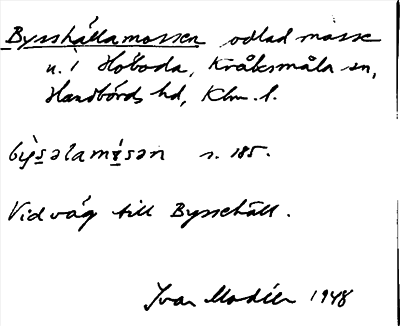 Bysshällamossen odlad mosse
u. i Höboda, Kråksmåla sn,
Handbörds hd, Klm. l.
bỳsəlamɩ́sən s. 185.
Vid väg till Byssehäll.
Ivar Modéer 1948